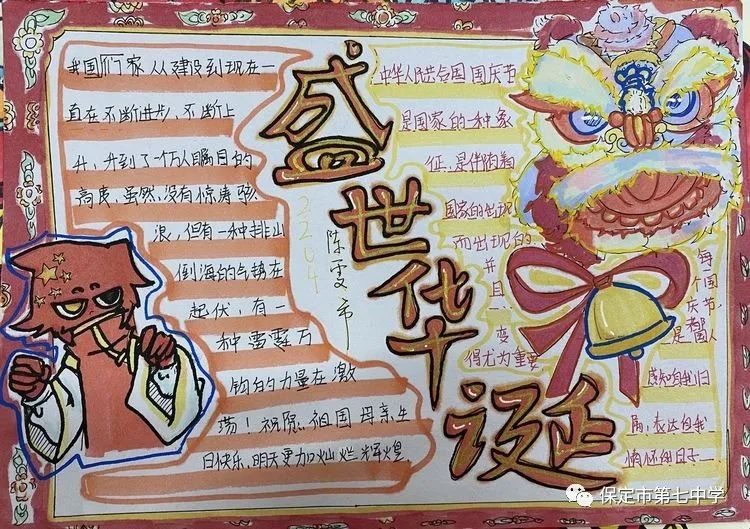 盛世华诞
我国们家从建设到现在一
直在不断进步,不断上
升,升到了一个万人瞩目的
高度,虽然没有惊涛骇
浪,但有一种排山
倒海的气势在
起伏,有一
种雷霆万
钧的力量在激
荡!祝愿祖国母亲生
日快乐,明天更加灿烂辉煌
2204
陈雯
中华人民共和国国庆节
是国家的一种象
征,是伴随着
国家的出现
而出现的,
并且
变
得尤为重要
每一个国
庆节,
是国人
感知自我归
属,表达自我
情怀的日子
保定市第七中学